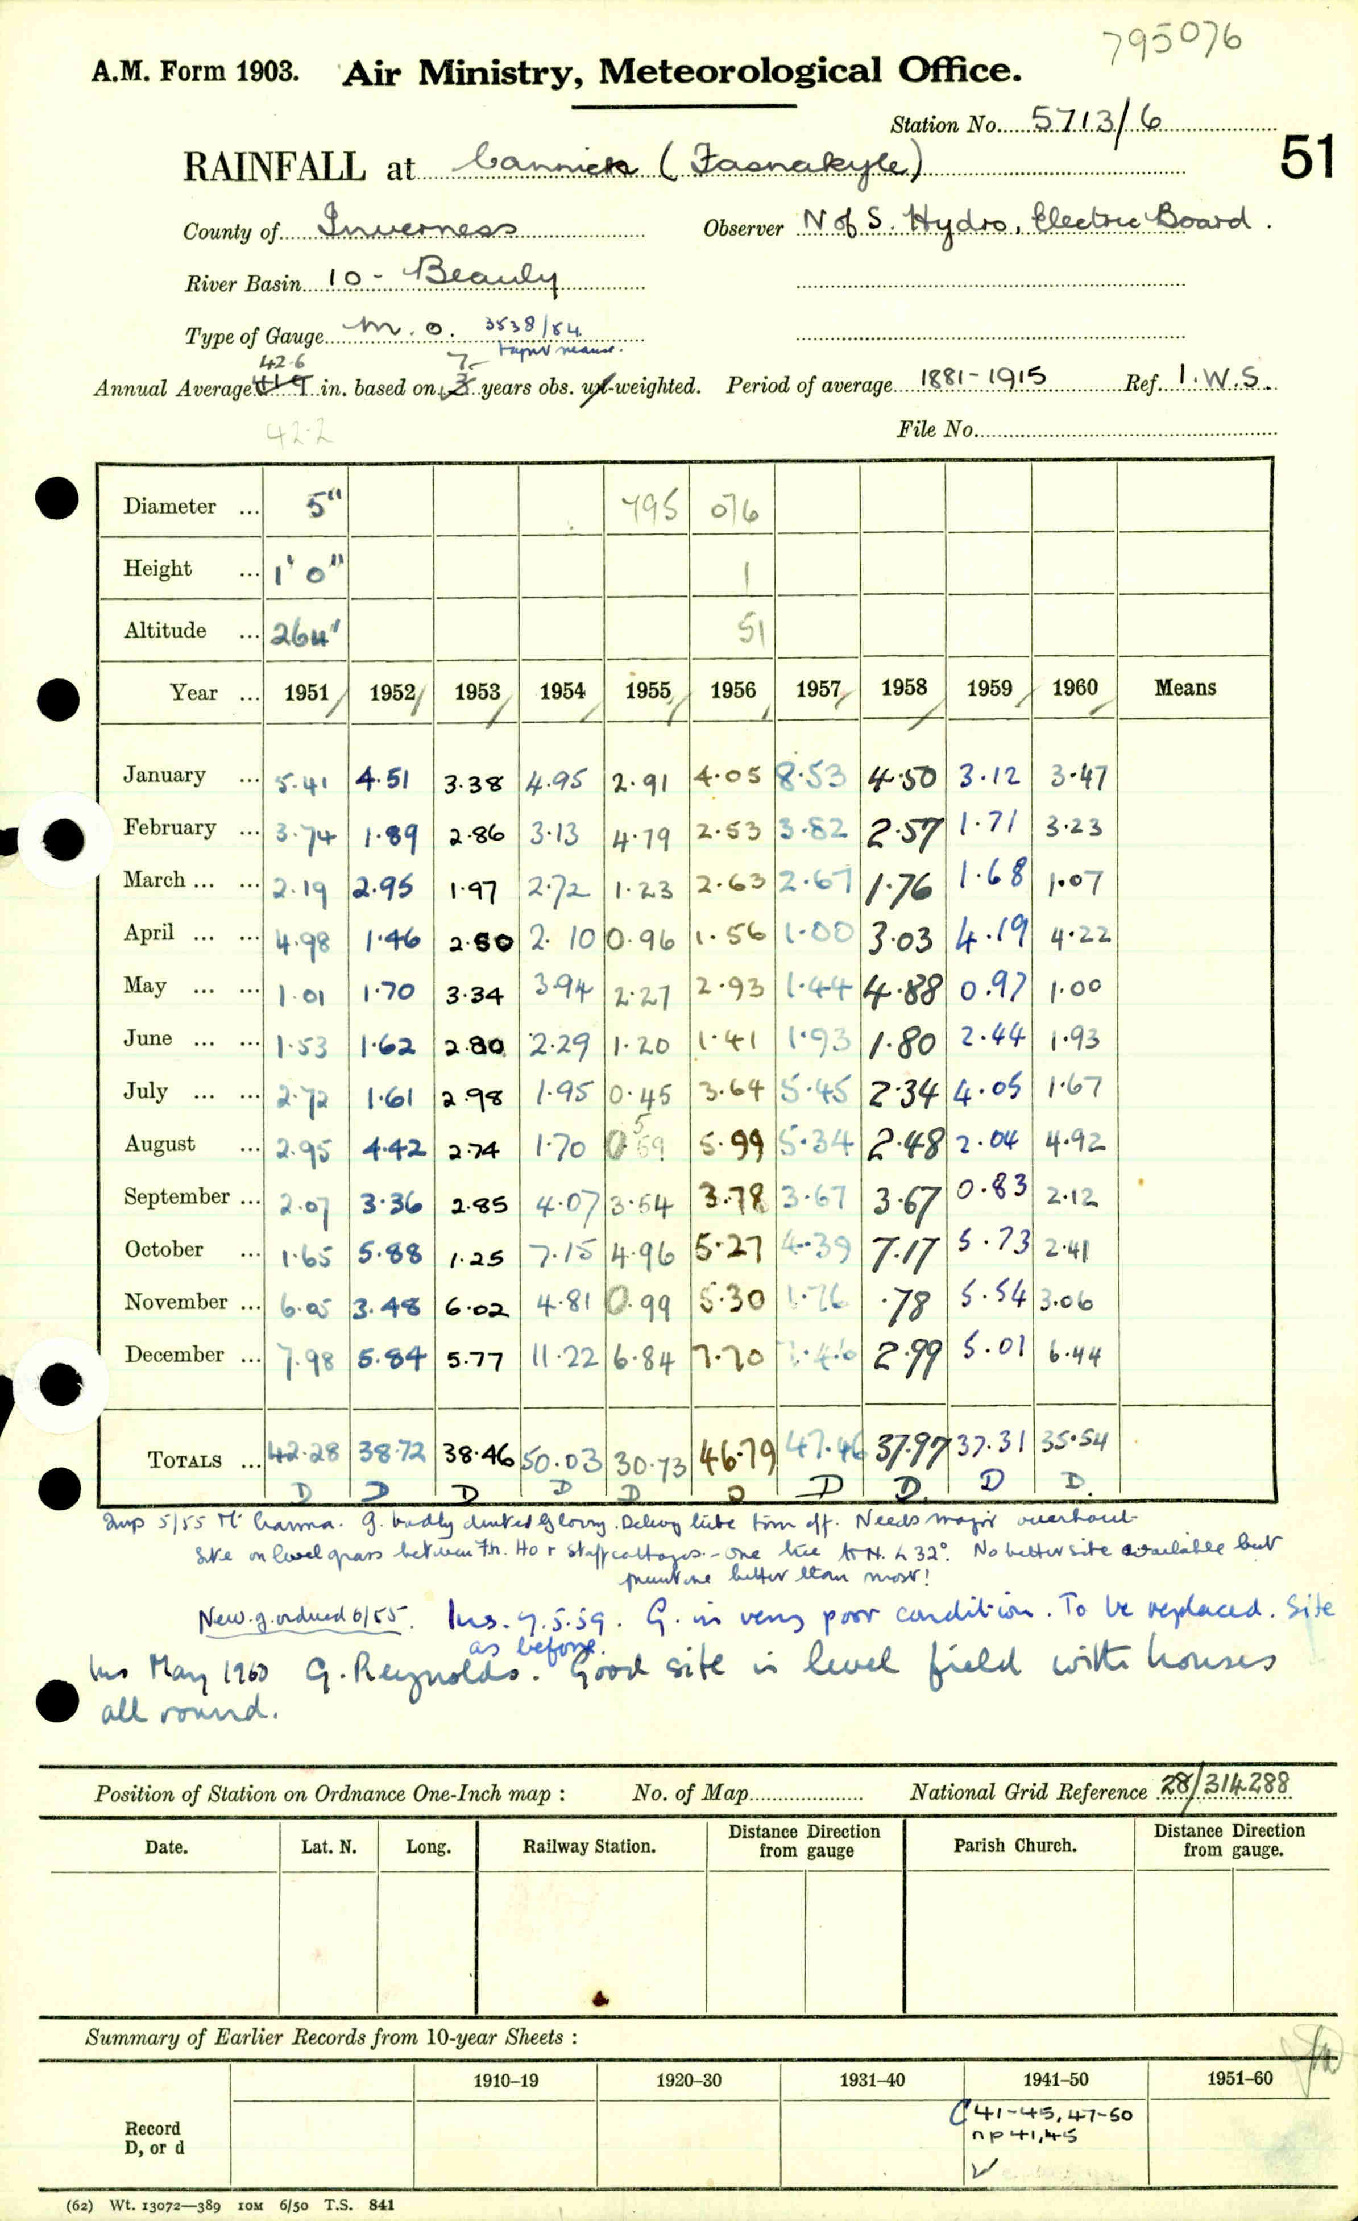 795076
A.M. Form 1903. Air Ministry, Meteorological Office.
Station No. 5713/6
RAINFALL at Cannich (Fasnakyle) 51
County of Inverness Observer N of S. Hydro, Electric Board.
River Basin 10 - Beauly
Type of Gauge m.o. 3538/54
42.6 7
Annual Average in. based on 3 years obs. un-weighted. Period of average 1881-1915 Ref. I.W.S.
42.2 File No.
Diameter ... 5" 795 076
Height ... 1' 0" 1
Altitude ... 264' 51
Year ... 1951 1952 1953 1954 1955 1956 1957 1958 1959 1960 Means
January ... 5.41 4.51 3.38 4.95 2.91 4.05 8.53 4.50 3.12 3.47
February ... 3.74 1.89 2.86 3.13 4.79 2.53 3.82 2.57 1.71 3.23
March ... ... 2.19 2.95 1.97 2.72 1.23 2.63 2.67 1.76 1.68 1.07
April ... ... 4.98 1.46 2.50 2.10 0.96 1.56 1.00 3.03 4.19 4.22
May ... ... 1.01 1.70 3.34 3.94 2.27 2.93 1.44 4.88 0.97 1.00
June ... ... 1.53 1.62 2.80 2.29 1.20 1.41 1.93 1.80 2.44 1.93
July ... ... 2.72 1.61 2.98 1.95 0.45 3.64 5.45 2.34 4.05 1.67
August ... 2.95 4.42 2.74 1.70 0.59 5.99 5.34 2.48 2.04 4.92
September ... 2.07 3.36 2.85 4.07 3.54 3.78 3.67 3.67 0.83 2.12
October ... 1.65 5.88 1.25 7.15 4.96 5.27 4.39 7.17 5.73 2.41
November ... 6.05 3.48 6.02 4.81 0.99 5.30 1.76 .78 5.54 3.06
December ... 7.98 5.84 5.77 11.22 6.84 7.70 7.46 2.99 5.01 6.44
TOTALS ... 42.28 38.72 38.46 50.03 30.73 46.79 47.46 37.97 37.31 35.54
D D D D D D D D. D D.
Insp 5/55 G. badly dented. Delivery tube torn off. Needs major overhaul
Site on level grass between & staff cottages - one tree to N. 32°. No better site available but
better than most!
New g. ordered 6/55. Ins. 7.5.59. G. in very poor condition. To be replaced. Site
as before.
Ins May 1960 G. Reynolds. Good site in level field with houses
all round.
Position of Station on Ordnance One-Inch map : No. of Map National Grid Reference 28/314288
Date. Lat. N. Long. Railway Station. Distance from gauge Direction Parish Church. Distance from gauge. Direction
Summary of Earlier Records from 10-year Sheets :
1910-19 1920-30 1931-40 1941-50 1951-60
Record
D, or d
C 41-45, 47-50
np 41,45
(62) Wt. 13072—389 10M 6/50 T.S. 841